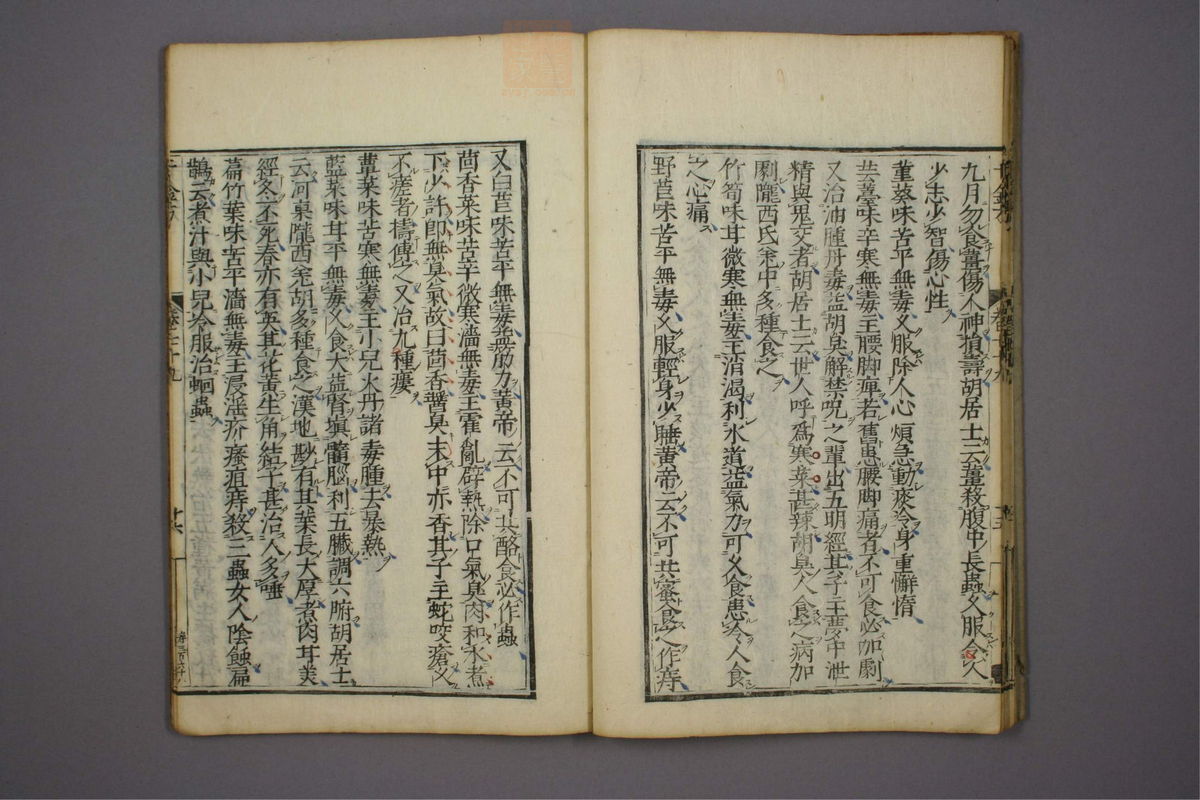 九月勿食薑傷人神損壽胡居士云薑殺腹中長蟲久服令人
少志少智傷心性
堇葵味苦平無毒久服除人心煩急動痰冷身重懈惰
芸薹味辛寒無毒主腰脚痺若舊患腰脚痛者不可食必加劇
又治油腫丹毒益胡臭解禁呪之輩出五明經其子主夢中泄
精與鬼交者胡居士云世人呼爲寒菜甚辣胡臭人食之病加
劇隴西氐羌中多種食之
竹筍味甘微寒無毒主消渴利水道益氣力可久食患冷人食
之心痛
野苣味苦平無毒久服輕身少睡黄帝云不可共蜜食之作痔
又白苣味苦平無毒益筋力黄帝云不可共酪食必作蟲
茴香菜味苦辛微寒濇無毒主霍亂辟熱除口氣臭肉和水煮
下少許即無臭氣故曰茴香醬臭末中亦香其子主蛇咬瘡久
不瘥者擣傅之又治九種瘻
蕈菜味苦寒無毒主小兒火丹諸毒腫去暴熱
藍菜味甘平無毒久食大益腎填髓腦利五臟調六腑胡居士
云河東隴西羌胡多種食之漢地尠有其葉長大厚煮肉甘美
經冬不死春亦有英其花黄生角結子甚治人多睡
萹竹葉味苦平濇無毒主浸淫疥瘙疽痔殺三蟲女人陰蝕扁
鵲云煮汁與小兒冷服治蛔蟲